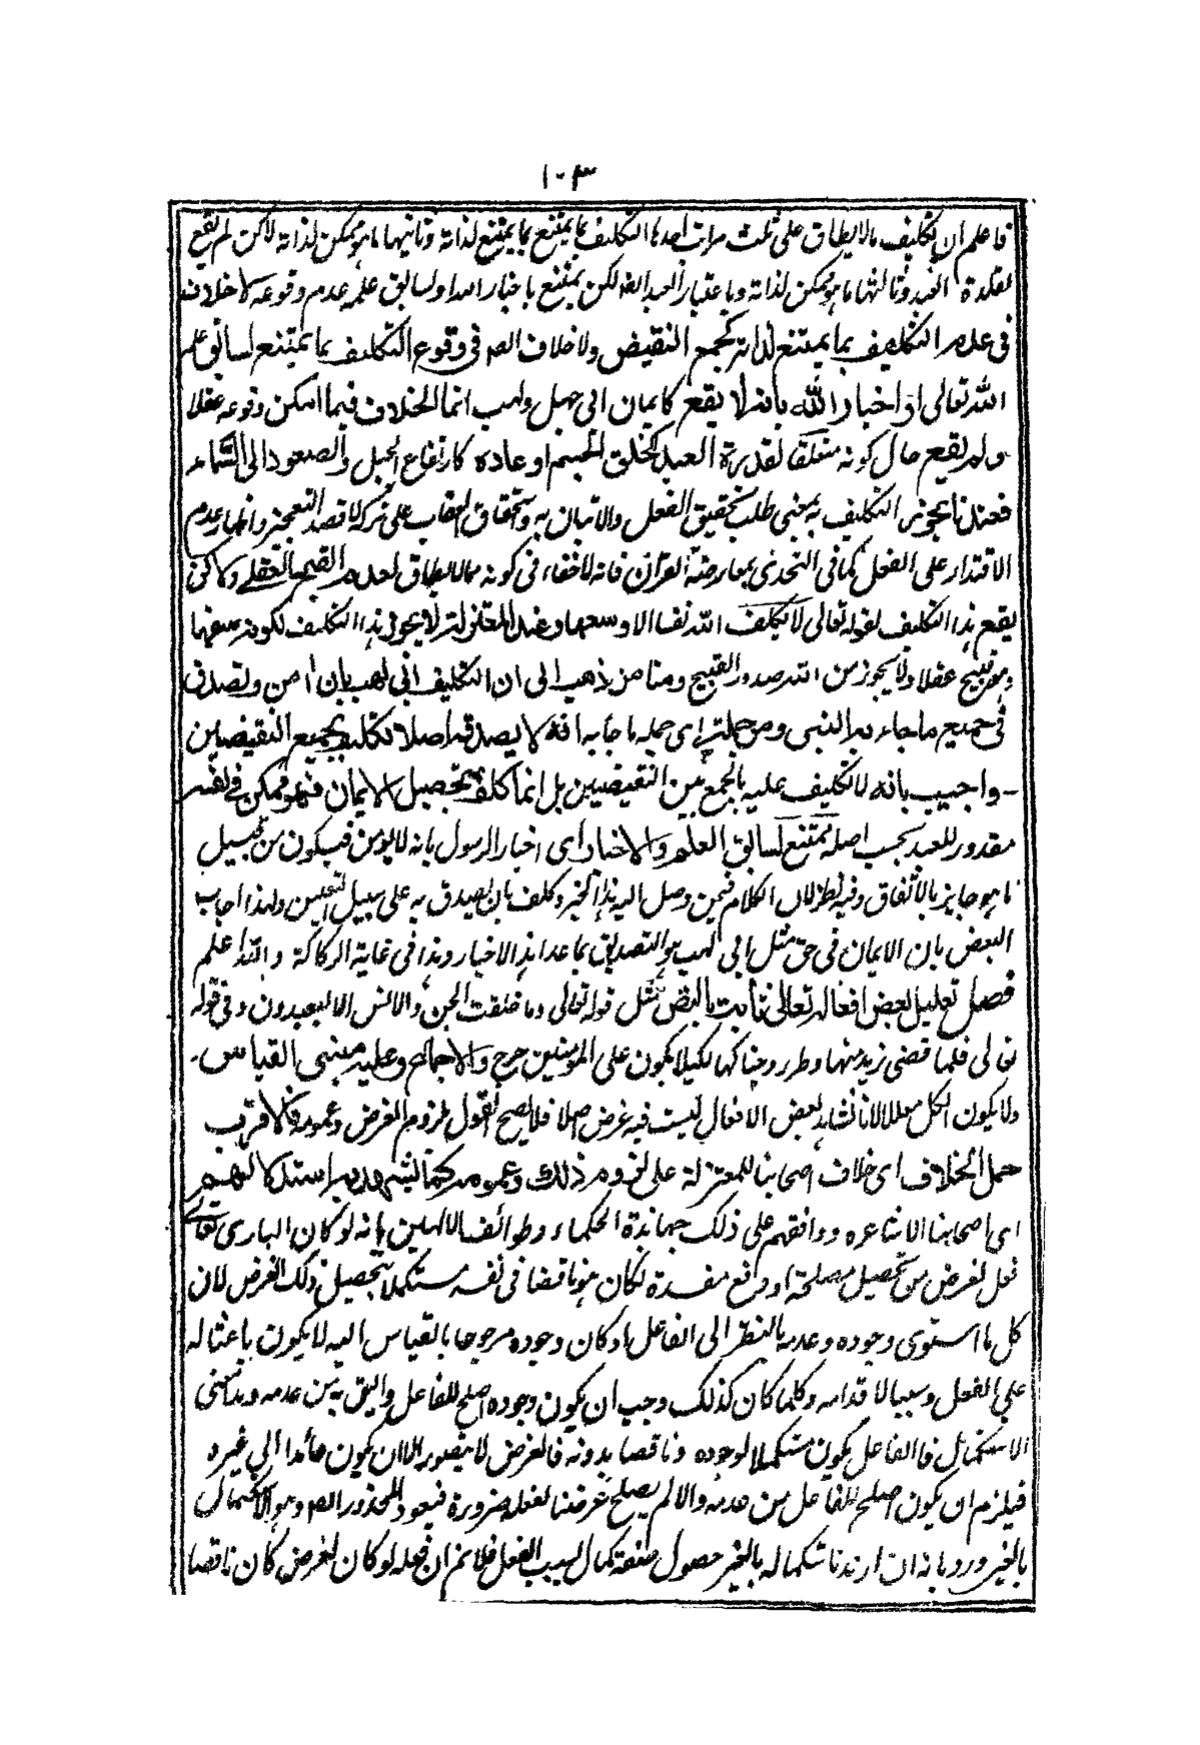 ١٠٣
فاعلم ان تكليف مالايطاق على ثلث مراتب احدها التكليف بما يمتنع بما يمتنع لذاته وثانيها ما هو ممكن لذاته لاكن لم يقع
لقدرة العبد وثالثها ما هو ممكن لذاته وباعتبار العبد ايضا لكن يمتنع باخبار الله او لسابق علمه عدم وقوعه لاخلاف
فى عدم التكليف بما يمتنع لذاته كجمع النقيض ولاخلاف ايضا فى وقوع التكليف بما يمتنع لسابق علم
الله تعالى او اخبار الله بانه لا يقع كايمان ابى جهل ولهب انما الخلاف فيما امكن وقوعه عقلا
ولم يقع حال كونه متعلقا لقدرة العبد كخلق الجسم او عادة كارتفاع الجبل والصعود الى السماء
فعندنا يجوز التكليف به بمعنى طلب تحقيق الفعل والاتيان به واستحقاق العقاب على تركه لا قصد التعجيز واظهار عدم
الاقتدار على الفعل كما فى التحدى بمعارضة القرآن فانه لاخفاء فى كونه مما لايطاق لعدم القبح العقلى ولاكن
يقع هذا التكليف لقوله تعالى لا يكلف الله نفسا الا وسعها وعند المعتزلة لا يجوز هذا التكليف لكونه سفها
وهو قبيح عقلا ولا يجوز من الله صدور القبيح ومنا من ذهب الى ان التكليف ابى لهب بان آمن وتصدق
فى جميع ما جاء به النبى ومن جملته اى جملة ما جاء به انه لا يصدقه اصلا تكليف بجميع النقيضين
واجيب بانه لاتكليف عليه بالجمع بين النقيضين بل انما كلف بتحصيل الايمان فهو ممكن فى نفسه
مقدور للعبد بحسب اصله يمتنع لسابق العلم والاخبار اى اخبار الرسول بانه لايومن فيكون من قبيل
ما هو جايز بالاتفاق وفيه نظر لان الكلام فيمن وصل اليه هذا الخبر وكلف بان يصدق به على سبيل التعيين ولهذا اجاب
البعض بان الايمان فى حق مثل ابى لهب هو التصديق بما عدا هذا الاخبار وهذا فى غاية الركاكة والله اعلم
فصل تعليل بعض افعاله تعالى ثابت بالنص مثل قوله تعالى وما خلقت الجن والانس الا ليعبدون وفى قوله
تعالى فلما قضى زيد منها وطرا زوجناكها لكيلا يكون على المؤمنين حرج والاجماع وعليه مبنى القياس
ولا يكون الكل معللا لانا نشاهد بعض الافعال ليست فيه غرض اصلا فلا يصح القول بلزوم الغرض وعمومه فالاقرب
حمل الخلاف اى خلاف اصحابنا للمعتزلة على لزوم ذلك وعمومه كما يشهد به استدلالهم
اى اصحابنا الاشاعره ووافقهم على ذلك جهابذة الحكماء وطوائف الالهين بانه لو كان البارى تعالى
فعل لغرض من تحصيل مصلحة او دفع مفسدة لكان هو ناقصا فى نفسه مستكملا بتحصيل ذلك الغرض لان
كل ما استوى وجوده وعدمه بالنظر الى الفاعل او كان وجوده مرجوحا بالقياس اليه لا يكون باعثا له
على الفعل وسببا لاقدامه وكلما كان كذلك وجب ان يكون وجوده اصلح للفاعل واليق به من عدمه وهذا معنى
الاستكمال فالفاعل يكون مستكملا لوجوده وناقصا بدونه فالغرض لا يتصور الا ان يكون عائدا الى غيره
فيلزم ان يكون اصلح للفاعل من عدمه والا لم يصلح غرضا لفعله ضرورة فيعود المحذور ايضا وهو الاستكمال
بالغير ورد بانه ان اردنا استكماله بالغير حصول صفة كمال لسبب الفعل فلا نم ان فعله لو كان لغرض كان ناقصا